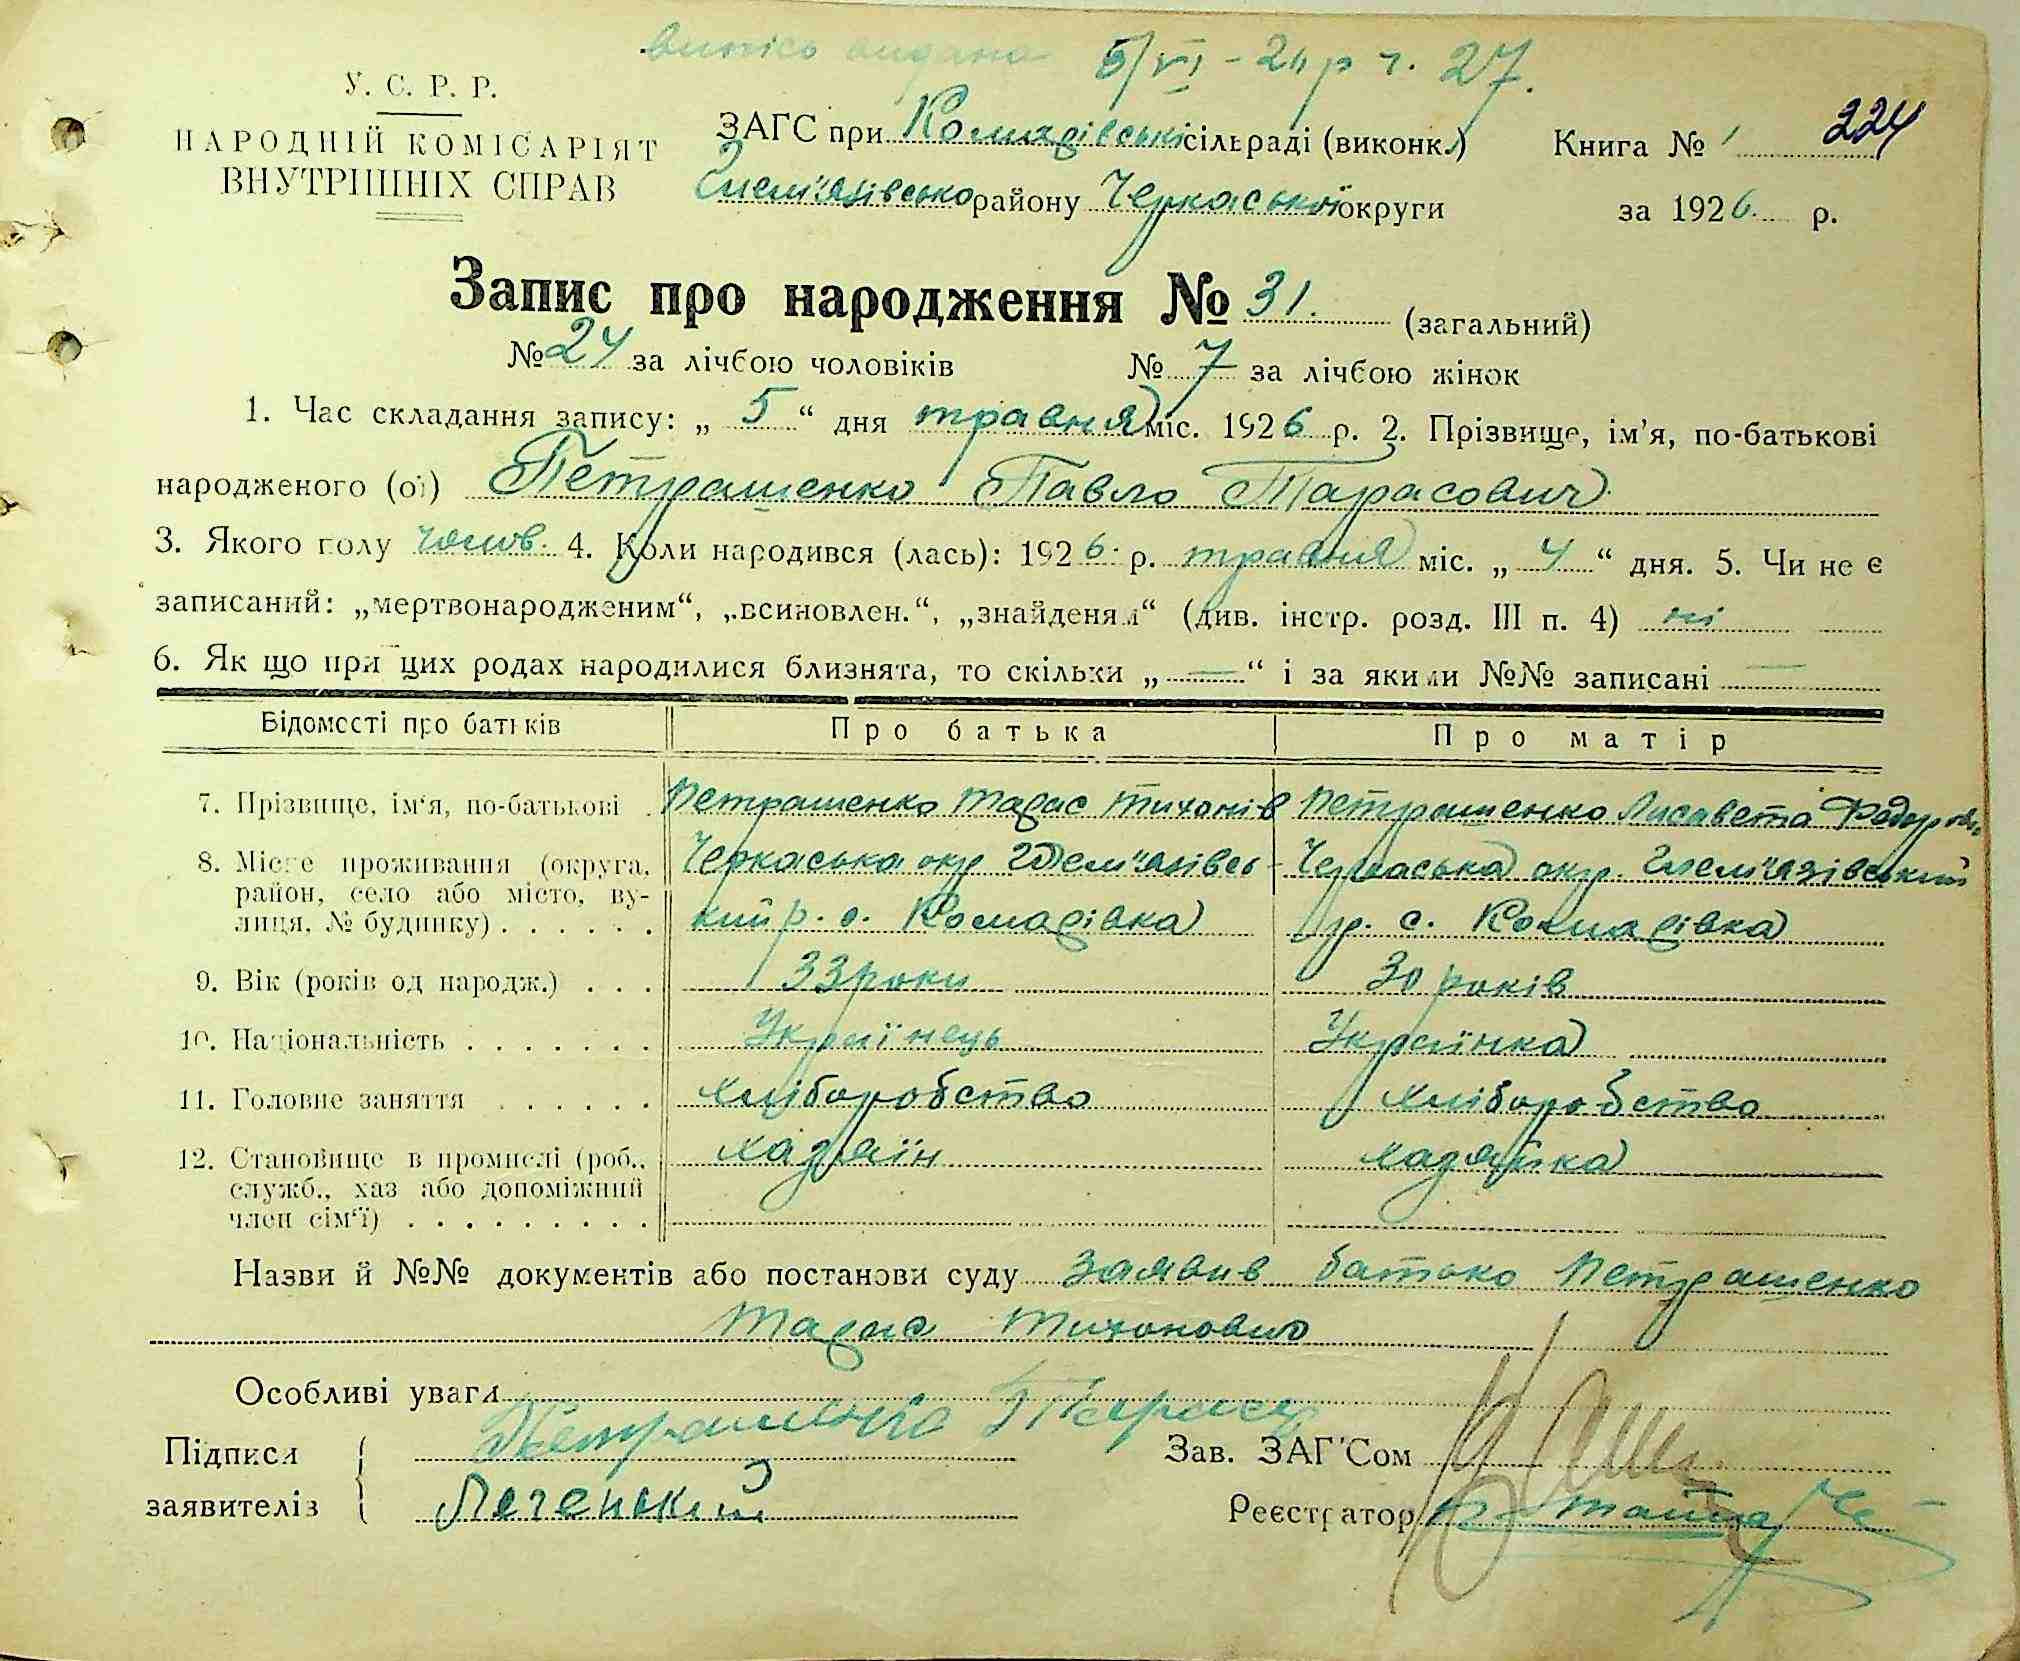 випись видана 5/VI - 2 р ч. 27.
У. С. Р. Р.
НАРОДНІЙ КОМІСАРІЯТ
ВНУТРІШНІХ СПРАВ
ЗАГС при Комарівській сільраді (виконк.)
Гельмязівсько району Черкаської округи
Книга № 1 224
за 1926 р.
Запис про народження № 31. (загальний)
№ 24 за лічбою чоловіків № 7 за лічбою жінок
1. Час складання запису: „ 5 “ дня травня міс. 1926 р. 2. Прізвище, ім’я, по-батькові
народженого (ої) Петрашенко Павло Тарасович
3. Якого полу чолов. 4. Коли народився (лась): 1926 р. травня міс. „ 4 “ дня. 5. Чи не є
записаний: „мертвонародженим“, „всиновлен.“, „знайденям“ (див. інстр. розд. III п. 4) ні
6. Як що при цих родах народилися близнята, то скільки „ — “ і за якими №№ записані —
Відомості про батьків Про батька Про матір
7. Прізвище, ім‘я, по-батькові Петрашенко Тарас Тихонів Петрашенко Лисавета Федоровн
8. Місце проживання (округа, Черкаська окр. Гельмязівсь- Черкаська окр. Гельмязівський
район, село або місто, ву- кий р. с. Комарівка р. с. Комарівка
лиця, № будинку) . . . . . .
9. Вік (років од народж.) . . . 33 роки 30 років
10. Національність . . . . . . . Українець Українка
11. Головне заняття . . . . . . хліборобство хліборобство
12. Становище в промислі (роб., хазяїн хазяйка
служб., хаз або допоміжний
член сім‘ї) . . . . . . . . .
Назви й №№ документів або постанови суду заявив батько Петрашенко
Тарас Тихонович
Особливі уваги
Підписи Петрашенко Тарас
заявителів Легенький
Зав. ЗАГ‘Сом
Реєстратор